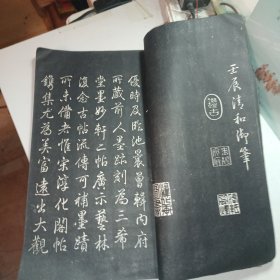 壬辰清和御筆
優時及臨池曩曾輯内府
所藏前人墨跡刻為三希
堂墨妙軒二帖廣示藝林
復念古帖流傳可補墨蹟
所未備者惟宋淳化閣帖
鐫集尤為美富遠出大觀